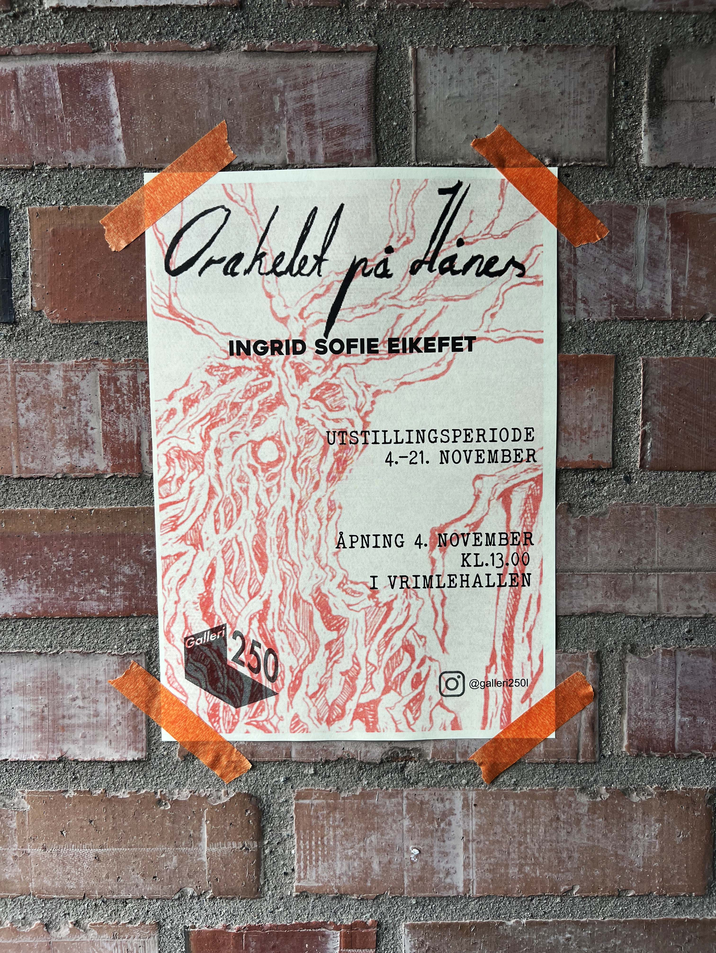 Orakelet på Hånes
INGRID SOFIE EIKEFET
UTSTILLINGSPERIODE
4.-21. NOVEMBER
ÅPNING 4. NOVEMBER
KL.13.00
I VRIMLEHALLEN
Galleri
250
@galleri250l